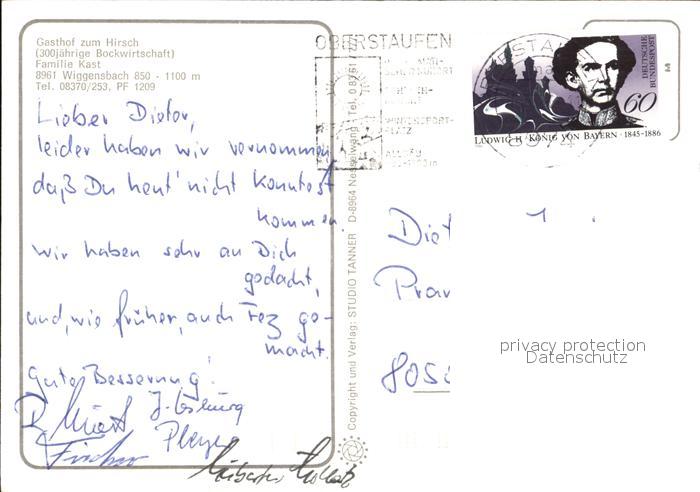 Gasthof zum Hirsch
(300jährige Bockwirtschaft)
Familie Kast
8961 Wiggensbach 850 - 1100 m
Tel. 08370/253, PF 1209
Lieber Dieter,
leider haben wir vernommen
daß Du heut' nicht konntest
kommen.
wir haben sehr an Dich
gedacht,
und, wie früher, auch Fez ge-
macht.
Gute Besserung!
Fischer
Copyright und Verlag: STUDIO TANNER D-8964 Nesselwang Tel. 08361/
OBERSTAUFEN
DEUTSCHE
BUNDESPOST
60
LUDWIG II · KÖNIG VON BAYERN · 1845-1886
Diet
805
privacy protection
Datenschutz